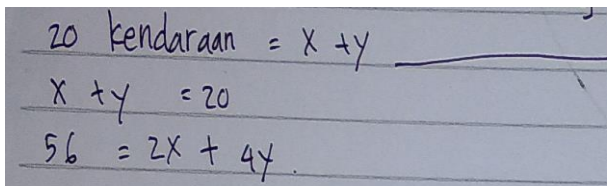 20 kendaraan = x + y
x + y = 20
56 = 2x + 4y.